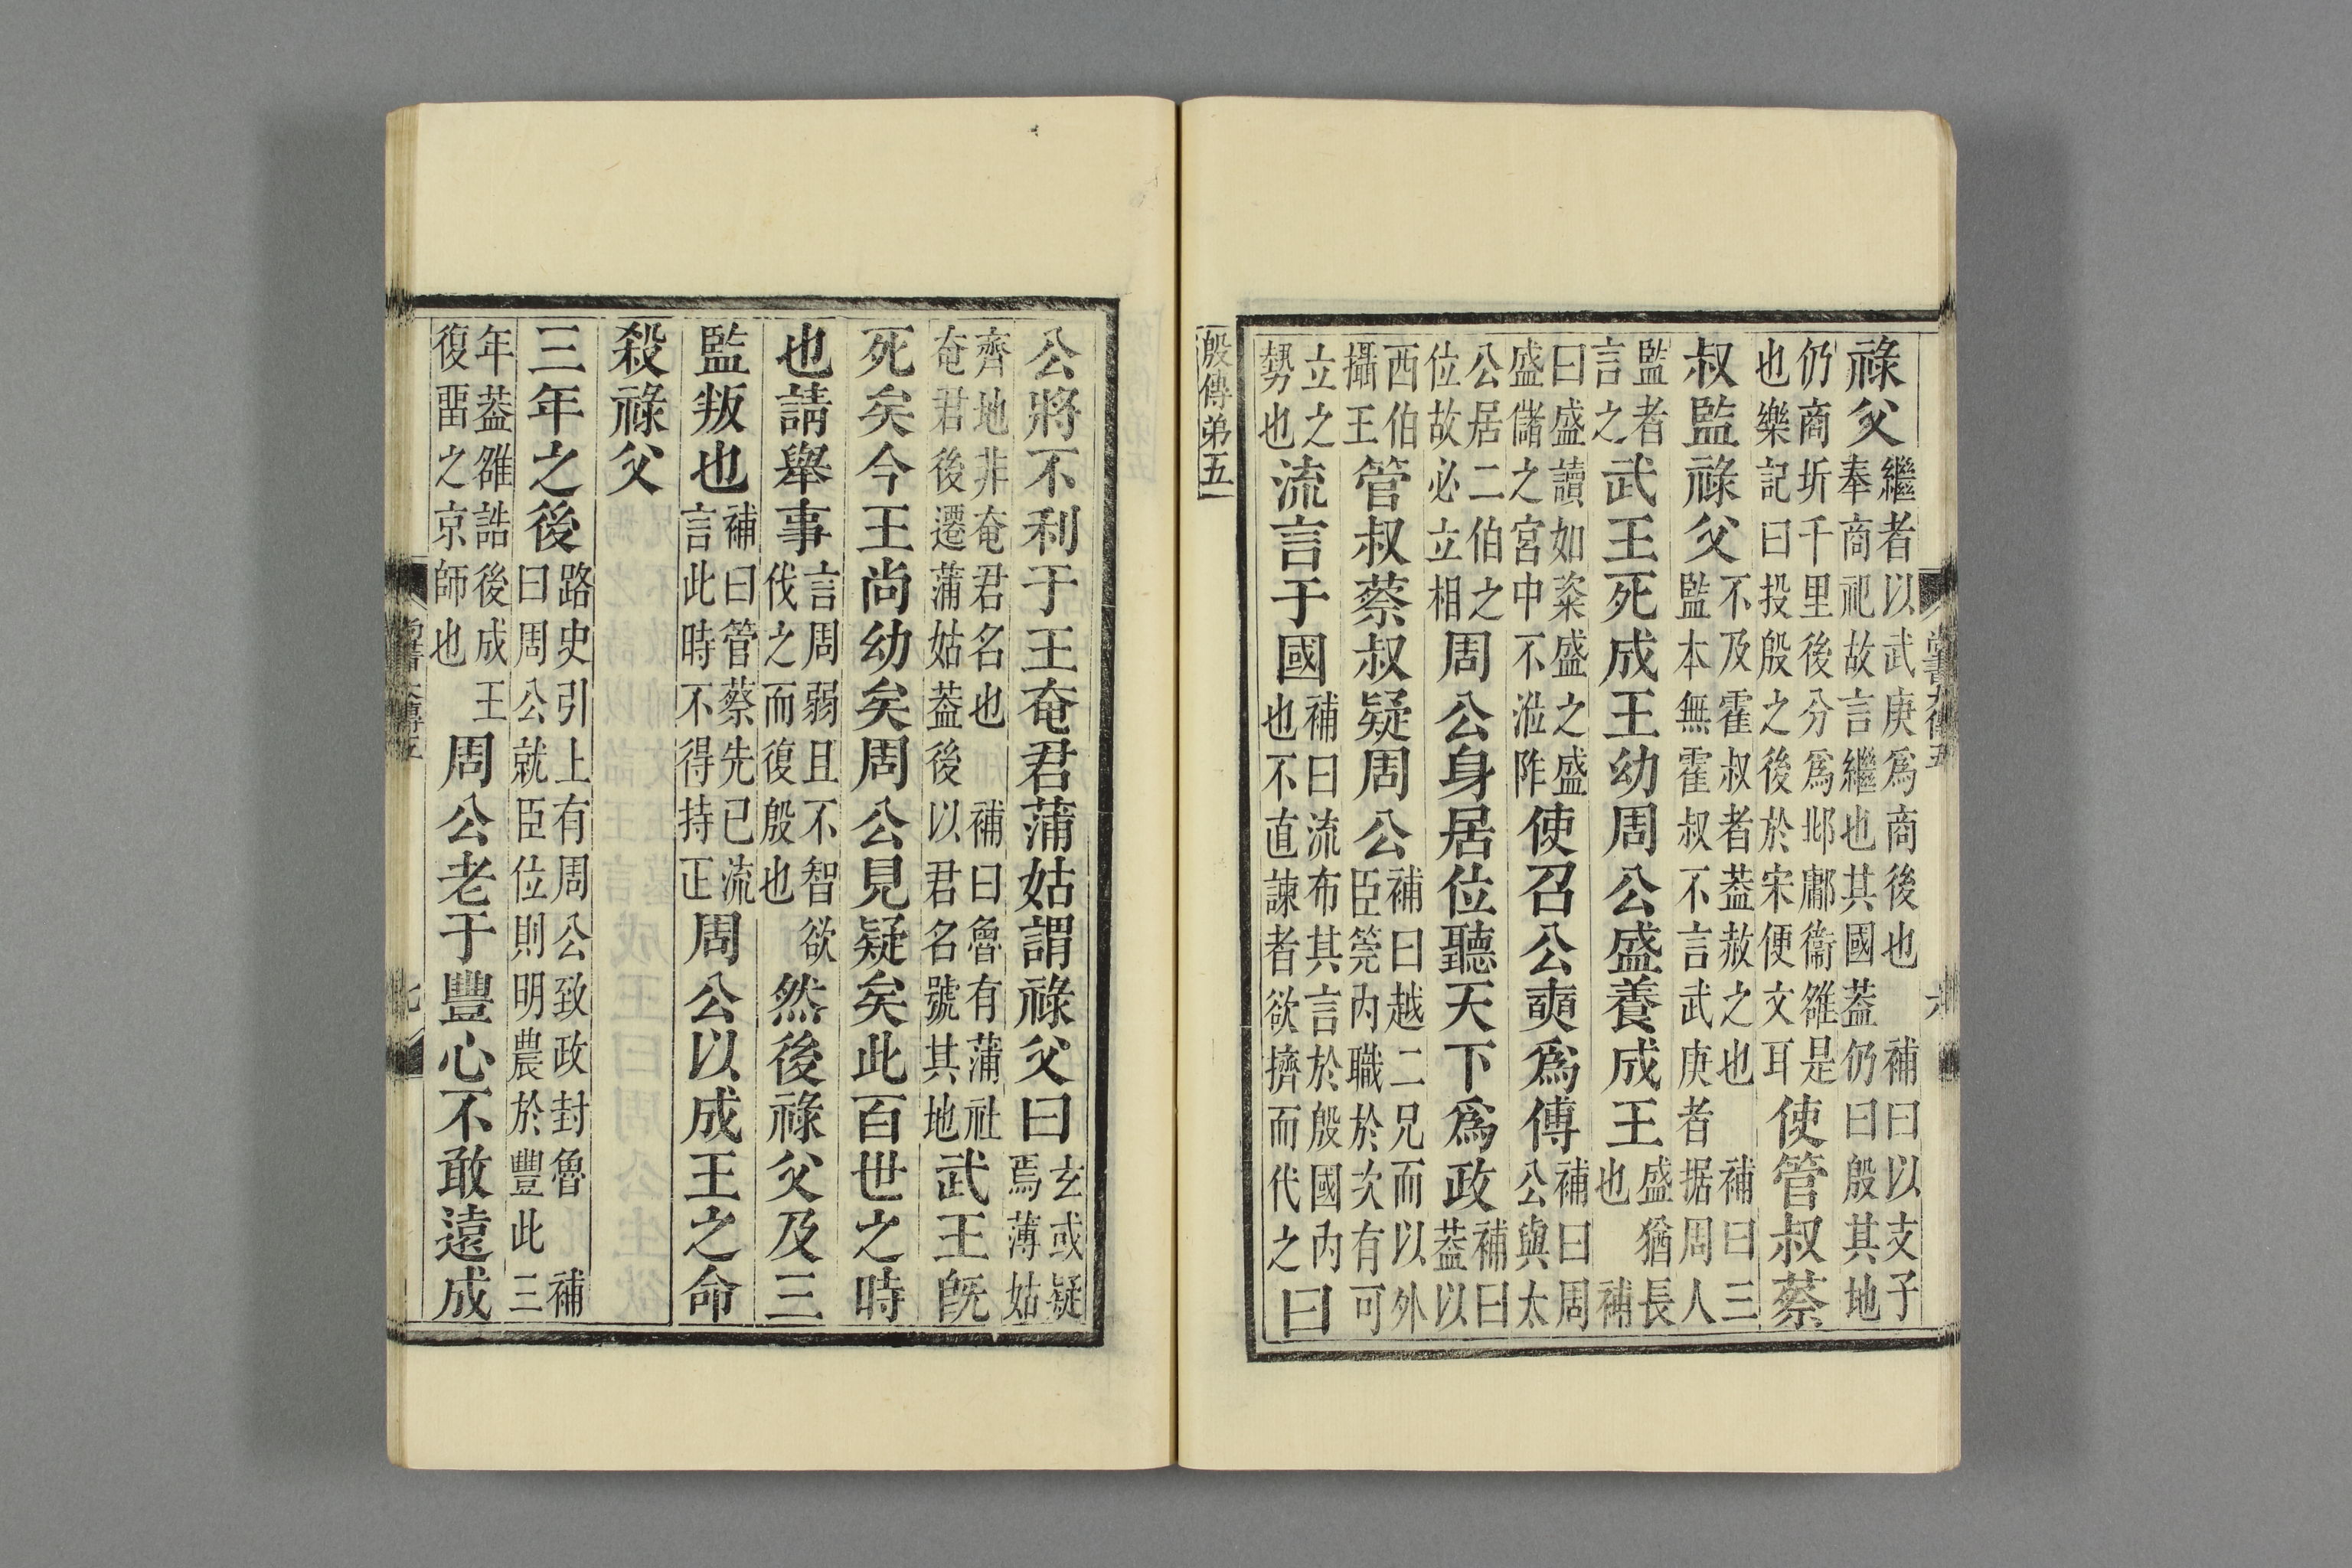 祿父繼者以武庚爲商後也 補曰以支子奉商祀故言繼也其國蓋仍曰殷其地
仍商圻千里後分爲邶鄘衞雒是也樂記曰投殷之後於宋便文耳使管叔蔡
叔監祿父不及霍叔者蓋赦之也 補曰三監本無霍叔不言武庚者据周人
監者言之武王死成王幼周公盛養成王盛猶長也 補
曰盛讀如粢盛之盛盛儲之宮中不涖阼使召公奭爲傅補曰周公與太
公居二伯之位故必立相周公身居位聽天下爲政補曰蓋以
西伯攝王管叔蔡叔疑周公補曰越二兄而以外臣筦內職於次有可
立之勢也流言于國補曰流布其言於殷國內也不直諫者欲擠而代之曰
殷傳弟五
公將不利于王奄君蒲姑謂祿父曰玄或疑焉薄姑
齊地非奄君名也 補曰魯有蒲社奄君後遷蒲姑蓋後以君名號其地武王旣
死矣今王尚幼矣周公見疑矣此百世之時
也請舉事言周弱且不智欲伐之而復殷也然後祿父及三
監叛也補曰管蔡先已流言此時不得持正周公以成王之命
殺祿父
三年之後路史引上有周公致政封魯 補曰周公就臣位則明農於豐此三
年蓋雒誥後成王復畱之京師也周公老于豐心不敢遠成